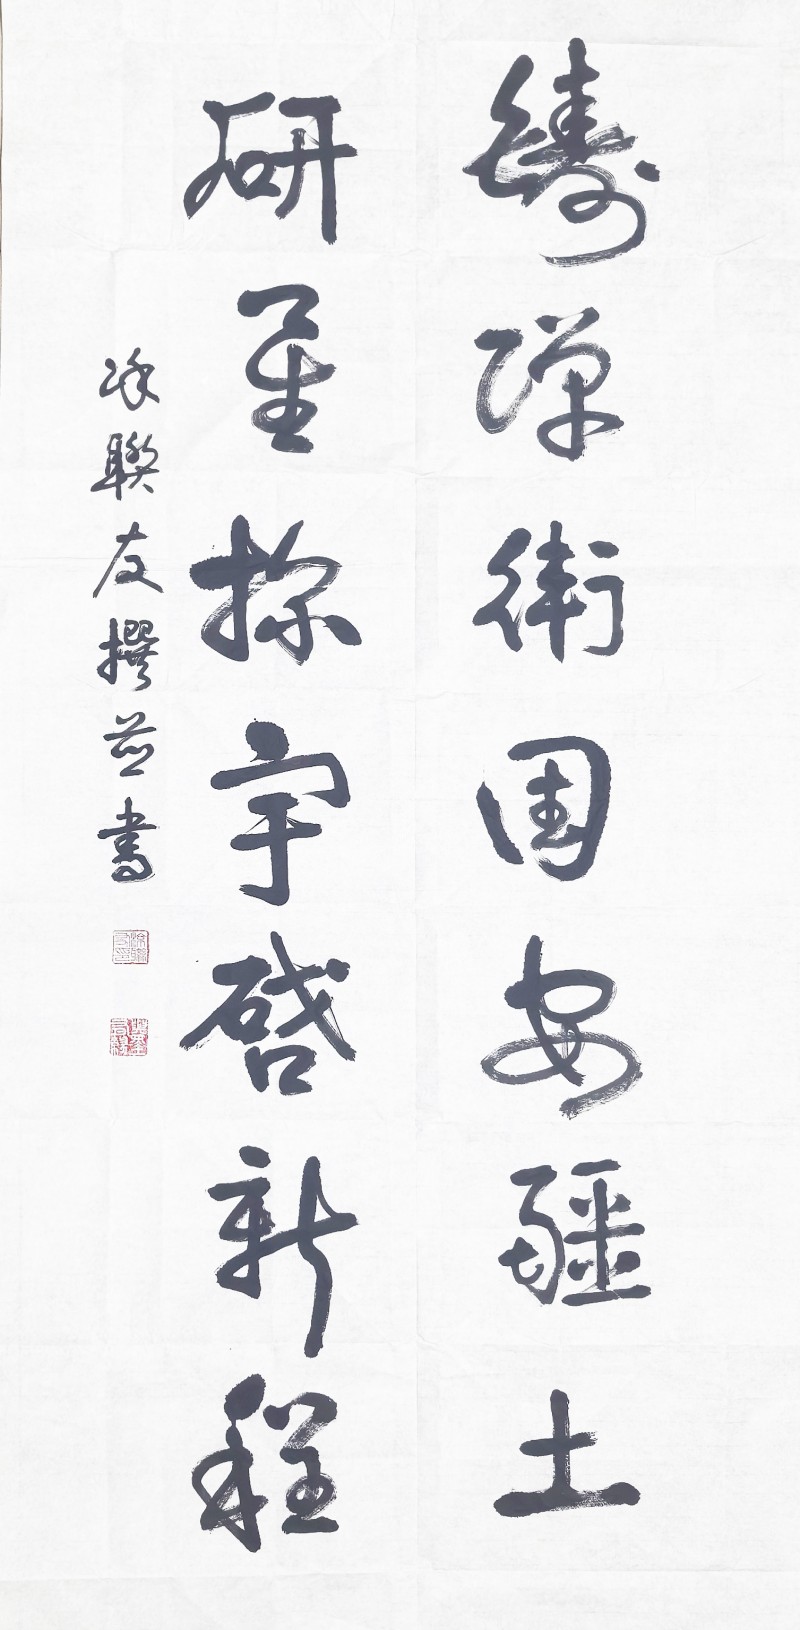 鑄弹衛国安疆土
研星探宇啓新程
徐聯友撰並書